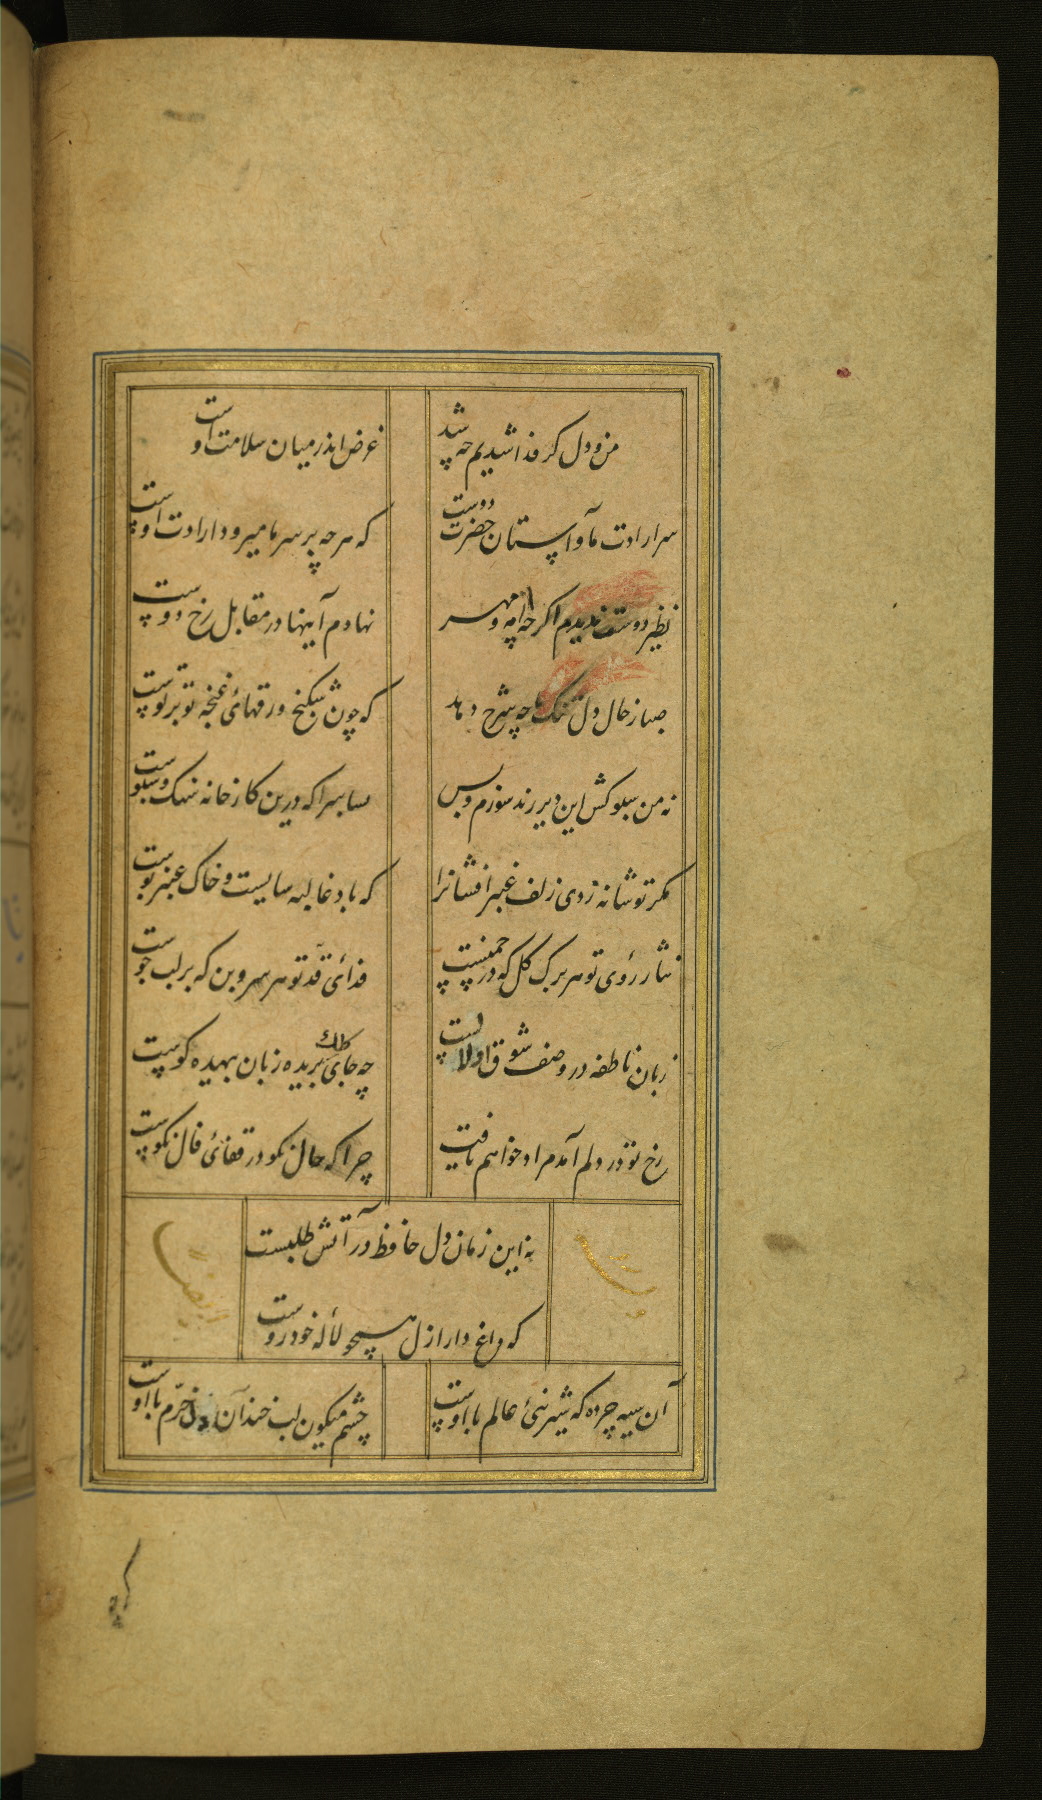 من و دل کر فدا شدیم چه شد
غرض اندر میان سلامت اوست
سر ارادت ما و آستان حضرت دوست
که هر چه بر سر ما میرود ارادت اوست
نظیر دوست ندیدم اکر چه از مه و مهر
نهادم آینها در مقابل رخ دوست
صبا ز حال دل تنک ما چه شرح دهد
که چون شکنج ورقهائ غنچه تو بر توست
نه من سبو کش این دیر رند سوزم و بس
بسا سرا که درین کارخانه سنک و سبوست
مکر تو شانه زدی زلف عنبر افشانرا
که باد غالیه سایست و خاک عنبر بوست
نثار روی تو هر برک کل که در چمنست
فدائ قد تو هر سرو بن که بر لب جوست
زبان ناطقه در وصف شوق او لالست
چه جای کلک بریده زبان بهیده کوست
رخ تو در دلم آمد مراد خواهم یافت
چرا که حال نکو در قفائ فال نکوست
نه این زمان دل حافظ در آتش طلبست
که داغدار ازل همچو لاله خودروست
آن سیه چرده که شیرینئ عالم با اوست
چشم میکون لب خندان دل خرم با اوست